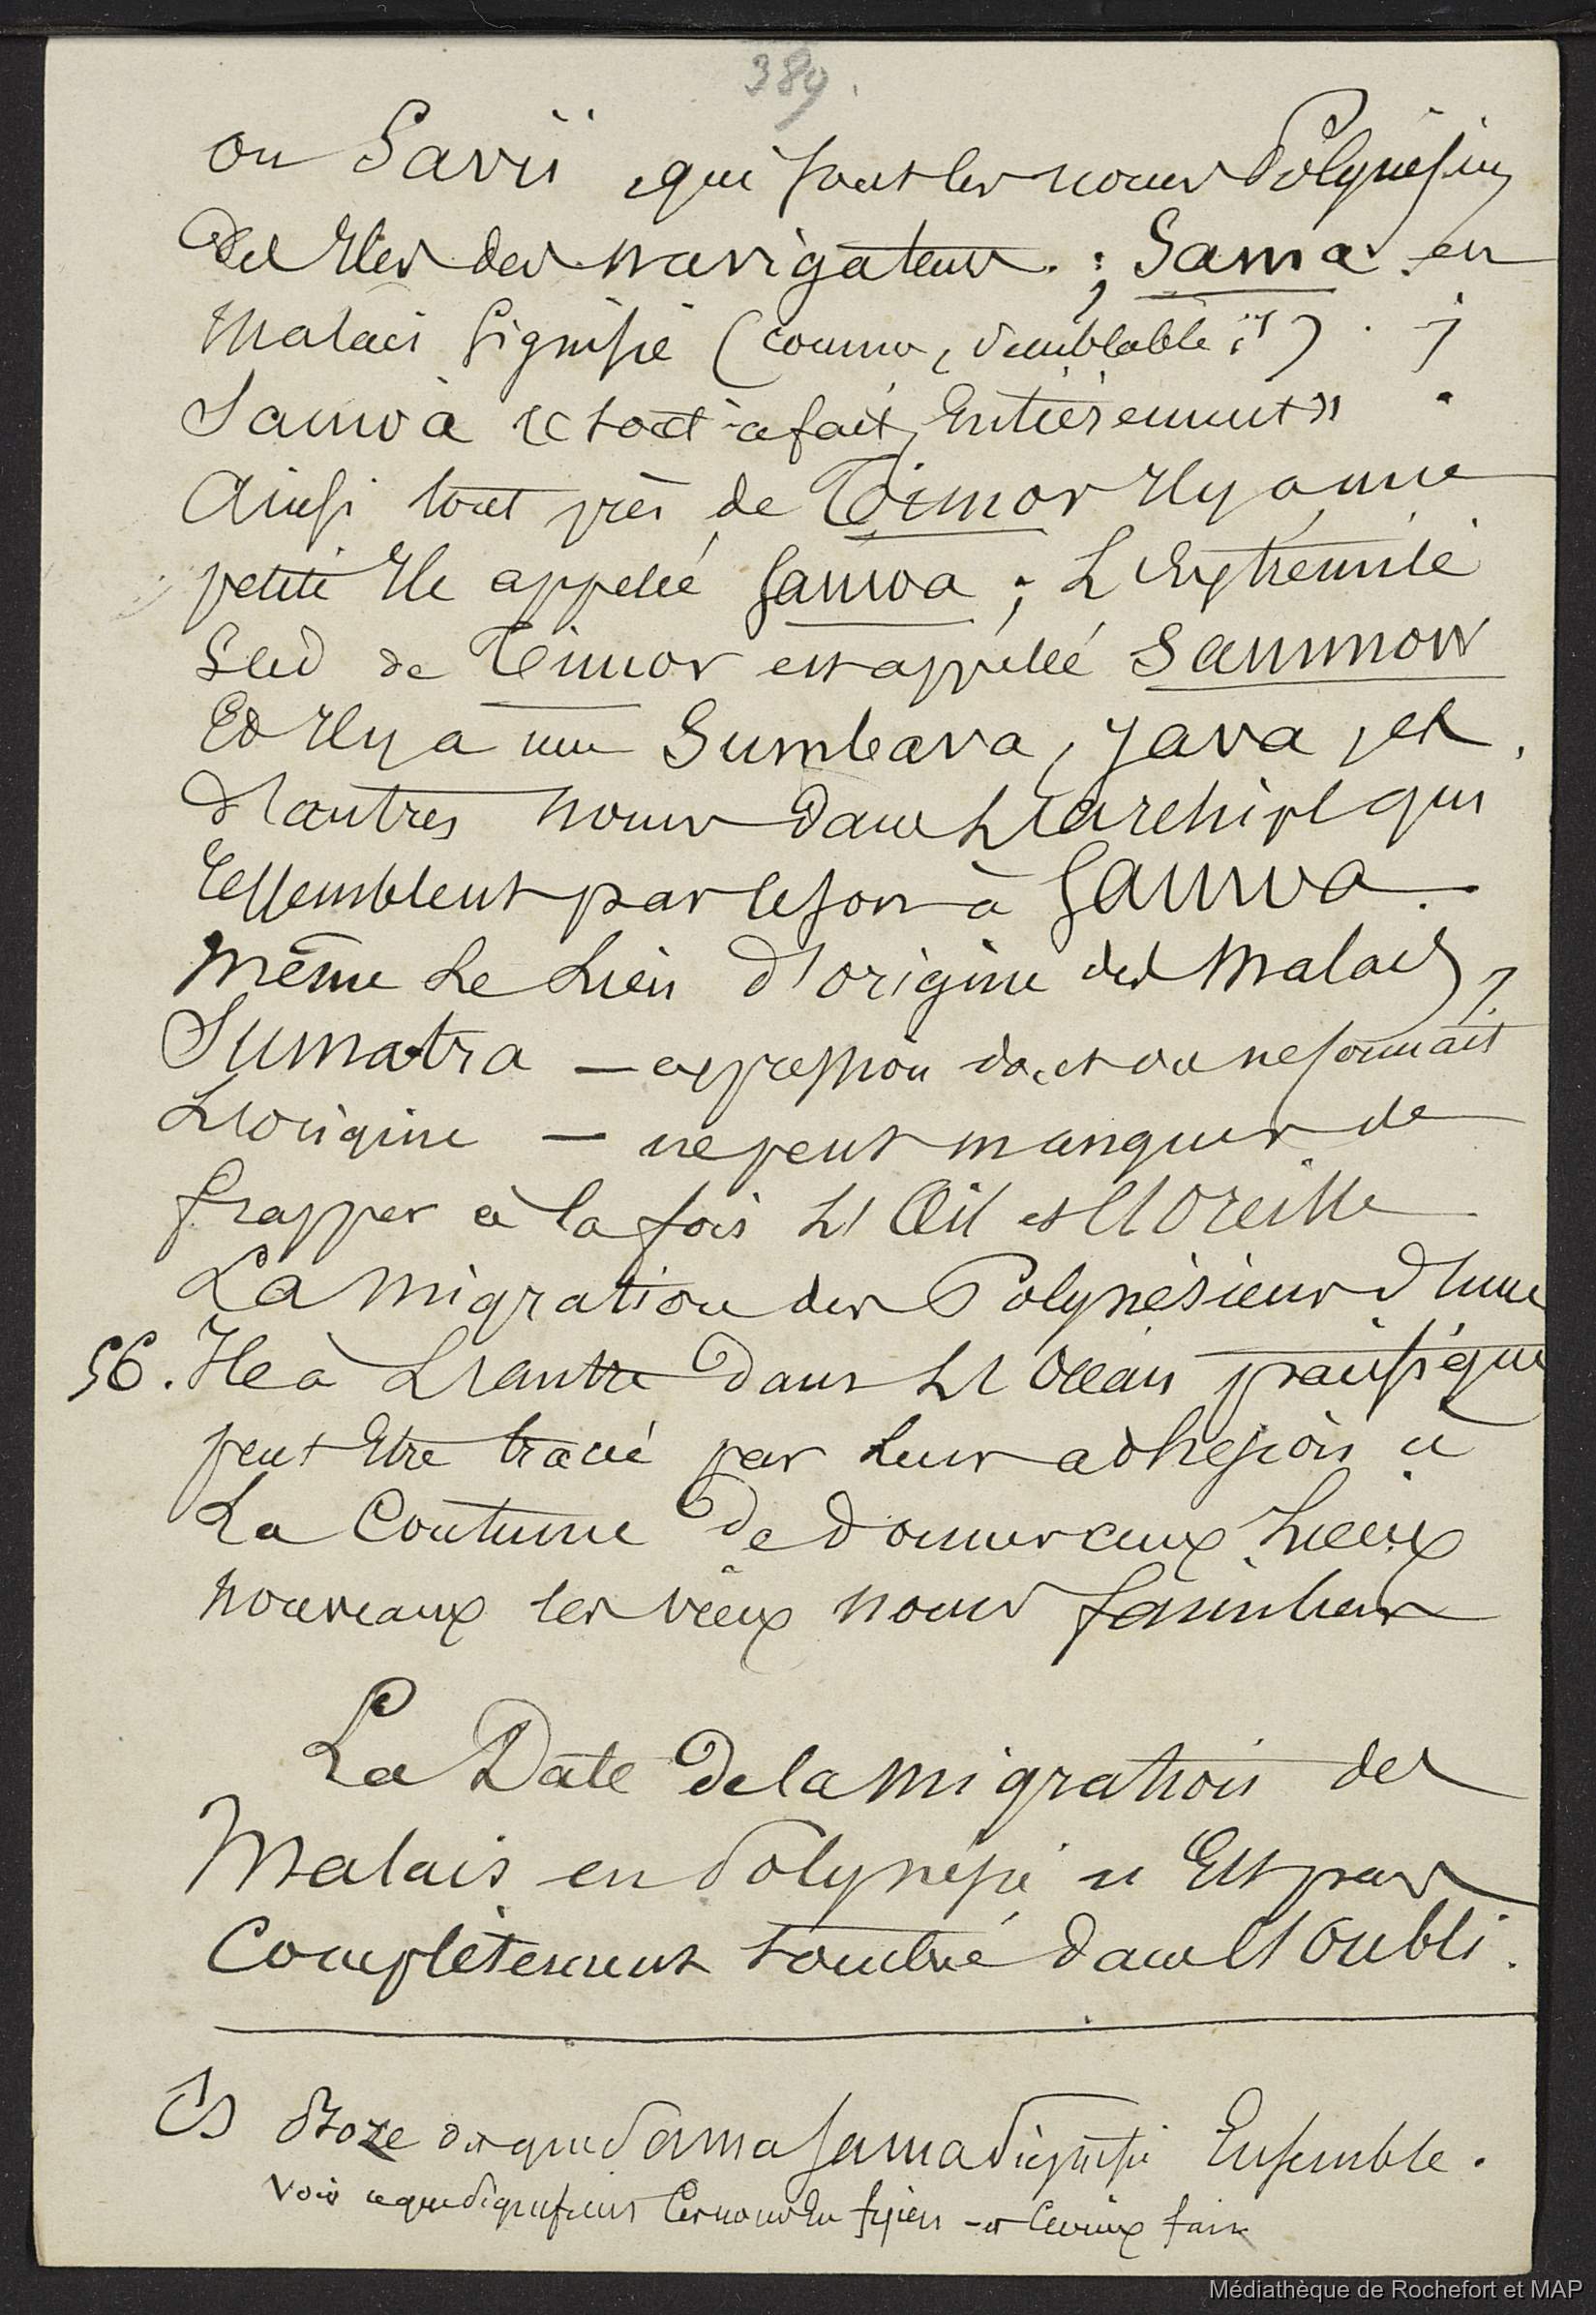 389.
ou Savïi qui sont les noms Polynésiens
des Iles des navigateurs. ; Sama en
Malais signifie (comme, semblable (1)) . ;
Samoa « tout-à-fait, Entièrement » .
Ainsi tout près de Timor Il y a une
petite Ile appelée Samoa ; L'Extrémité
Sud de Timor est appelée Sammow
Et Il y a un Sumbava, Java, et
d'autres noms dans L'archipel qui
ressemblent par le son à Samoa.
Même Le Lieu d'origine des Malais,
Sumatra — expression dont on ne connait
L'origine — ne peut manquer de
frapper à la fois L'Œil et l'Oreille
La migration des Polynésiens d'une
56. Ile à L'autre dans L'Océan pacifique
peut Etre tracée par Leur adhésion à
La Coutume De donner aux Lieux
nouveaux les vieux noms familiers
La Date De la migration des
Malais en Polynésie n'Est pas
Complètement tombée dans l'Oubli.
(1) dit que Sama Sama signifie Ensemble.
Voir ce que signifient ces noms En fijien
Médiathèque de Rochefort et MAP